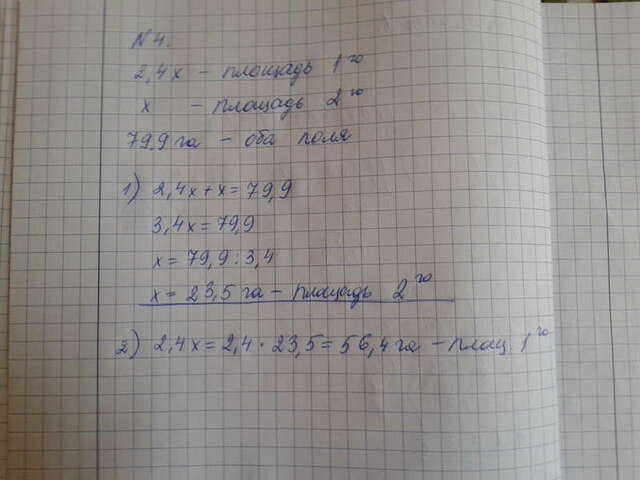 N 4.
2,4x – площадь 1го
x – площадь 2го
79,9 га – оба поля
1) 2,4x + x = 79,9
3,4x = 79,9
x = 79,9 : 3,4
x = 23,5 га – площадь 2го
2) 2,4x = 2,4 · 23,5 = 56,4 га – площ. 1го